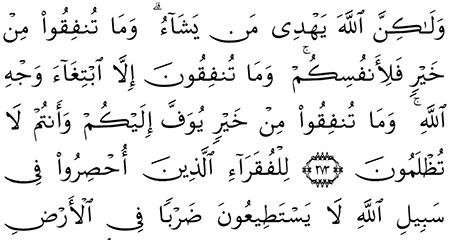 وَلَٰكِنَّ ٱللَّهَ يَهْدِى مَن يَشَآءُ ۗ وَمَا تُنفِقُوا۟ مِنْ
خَيْرٍ فَلِأَنفُسِكُمْ ۚ وَمَا تُنفِقُونَ إِلَّا ٱبْتِغَآءَ وَجْهِ
ٱللَّهِ ۚ وَمَا تُنفِقُوا۟ مِنْ خَيْرٍ يُوَفَّ إِلَيْكُمْ وَأَنتُمْ لَا
تُظْلَمُونَ ﴿٢٧٣﴾ لِلْفُقَرَآءِ ٱلَّذِينَ أُحْصِرُوا۟ فِى
سَبِيلِ ٱللَّهِ لَا يَسْتَطِيعُونَ ضَرْبًا فِى ٱلْأَرْضِ